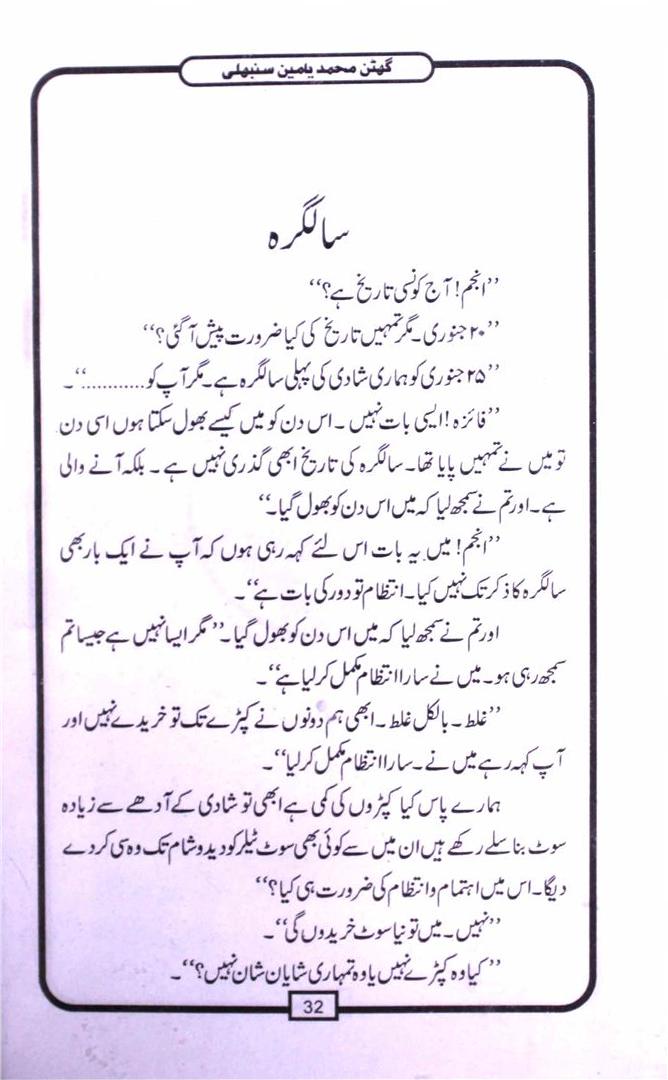 گھٹن محمد یامین سنبھلی
سالگرہ
’’انجم! آج کونسی تاریخ ہے؟‘‘
’’۲۰ جنوری۔ مگر تمہیں تاریخ کی کیا ضرورت پیش آ گئی؟‘‘
’’۲۵ جنوری کو ہماری شادی کی پہلی سالگرہ ہے۔ مگر آپ کو............‘‘۔
’’فائزہ! ایسی بات نہیں۔ اس دن کو میں کیسے بھول سکتا ہوں اسی دن
تو میں نے تمہیں پایا تھا۔ سالگرہ کی تاریخ ابھی گذری نہیں ہے۔ بلکہ آنے والی
ہے۔ اور تم نے سمجھ لیا کہ میں اس دن کو بھول گیا۔‘‘
’’انجم! میں یہ بات اس لئے کہہ رہی ہوں کہ آپ نے ایک بار بھی
سالگرہ کا ذکر تک نہیں کیا۔ انتظام تو دور کی بات ہے‘‘۔
اور تم نے سمجھ لیا کہ میں اس دن کو بھول گیا۔’’ مگر ایسا نہیں ہے جیسا تم
سمجھ رہی ہو۔ میں نے سارا انتظام مکمل کر لیا ہے‘‘۔
’’غلط۔ بالکل غلط۔ ابھی ہم دونوں نے کپڑے تک تو خریدے نہیں اور
آپ کہہ رہے میں نے۔ سارا انتظام مکمل کر لیا‘‘۔
ہمارے پاس کیا کپڑوں کی کمی ہے ابھی تو شادی کے آدھے سے زیادہ
سوٹ بنا سلے رکھے ہیں ان میں سے کوئی بھی سوٹ ٹیلر کو دیدو شام تک وہ سی کر دے
دیگا۔ اس میں اہتمام و انتظام کی ضرورت ہی کیا؟‘‘
’’نہیں۔ میں تو نیا سوٹ خریدوں گی‘‘۔
’’کیا وہ کپڑے نہیں یا وہ تمہاری شایان شان نہیں؟‘‘۔
32